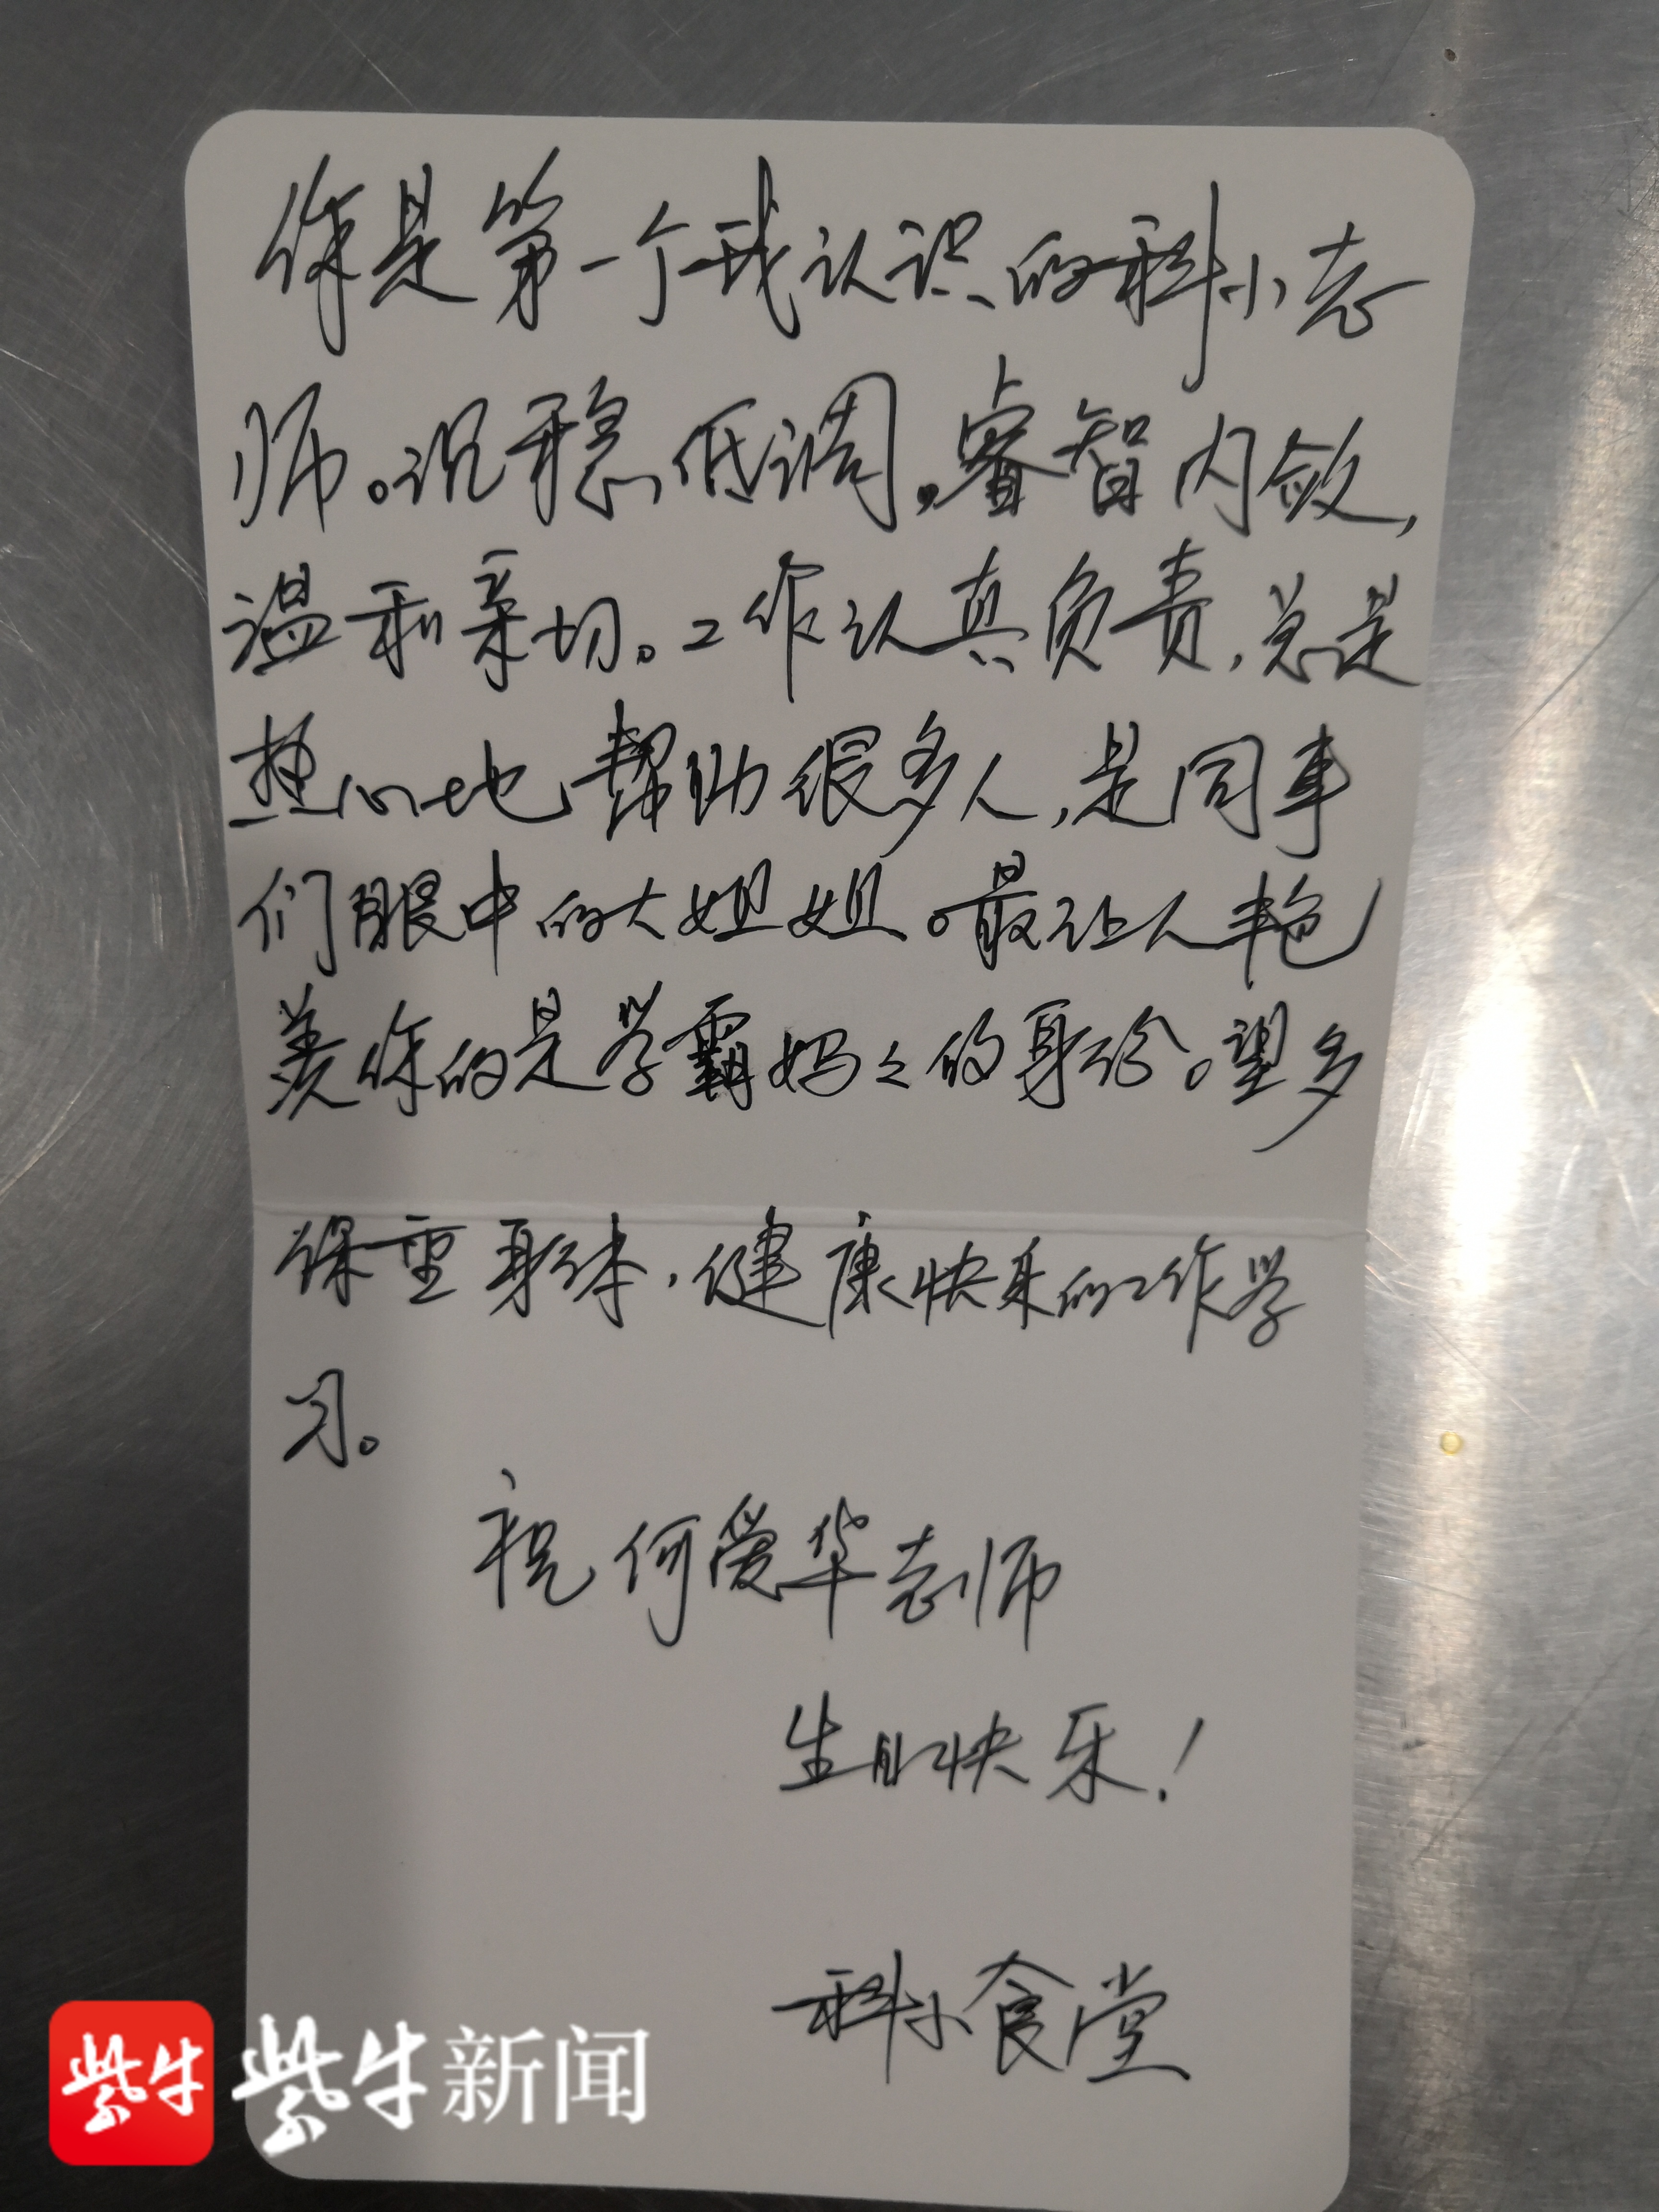 你是第一个我认识的科小老
师。沉稳低调，睿智内敛，
温和亲切。工作认真负责，总是
热心地帮助很多人，是同事
们眼中的大姐姐。最让人艳
羡你的是学霸妈々的身份。望多
保重身体，健康快乐的工作学
习。
祝何爱华老师
生日快乐！
科小食堂
紫牛
紫牛新闻